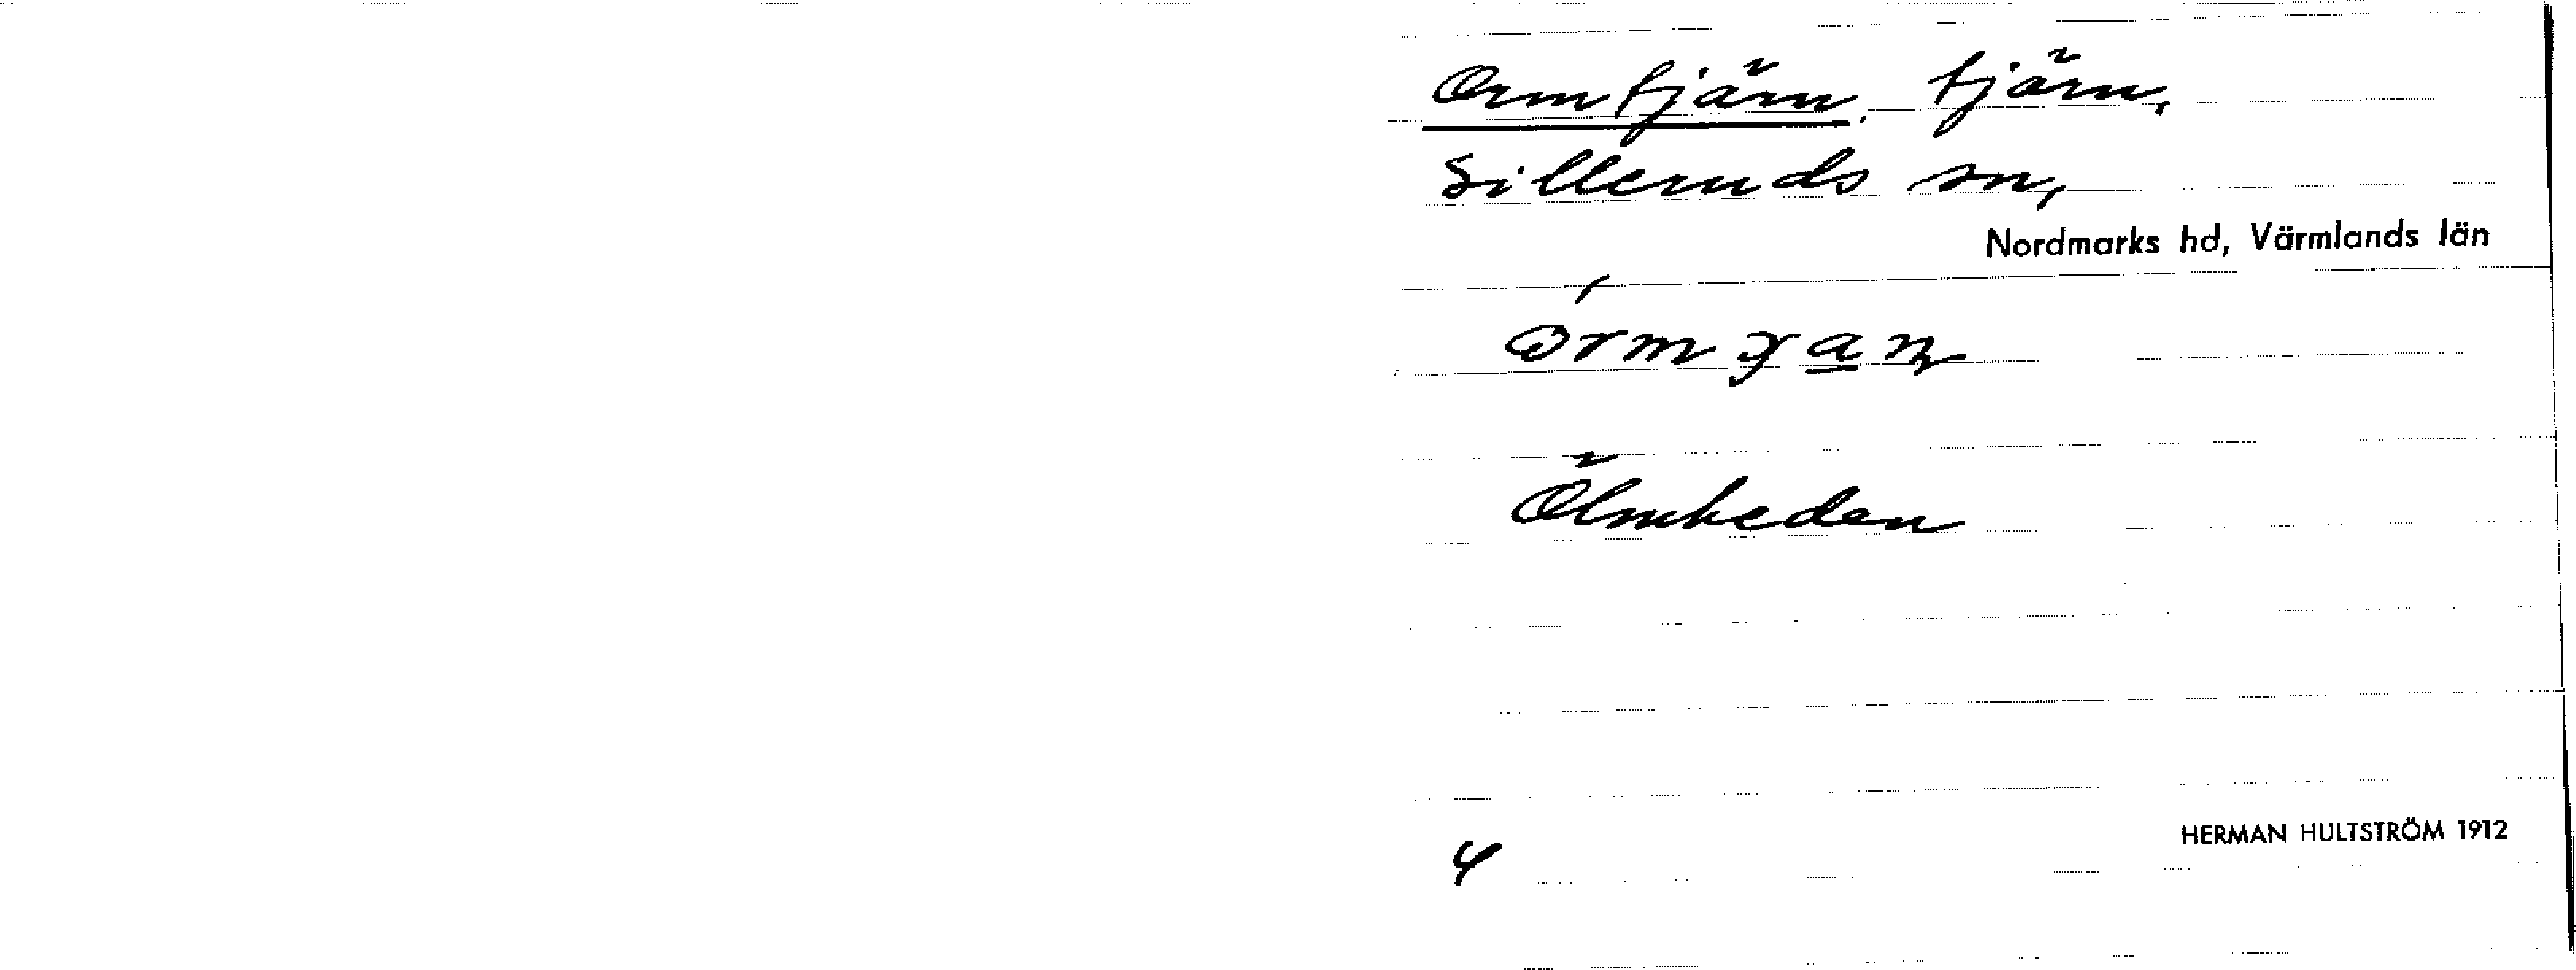 Ormtjärn, tjärn,
Silleruds sn,
Nordmarks hd, Värmlands län
Ölmheden
HERMAN HULTSTRÖM 1912
4